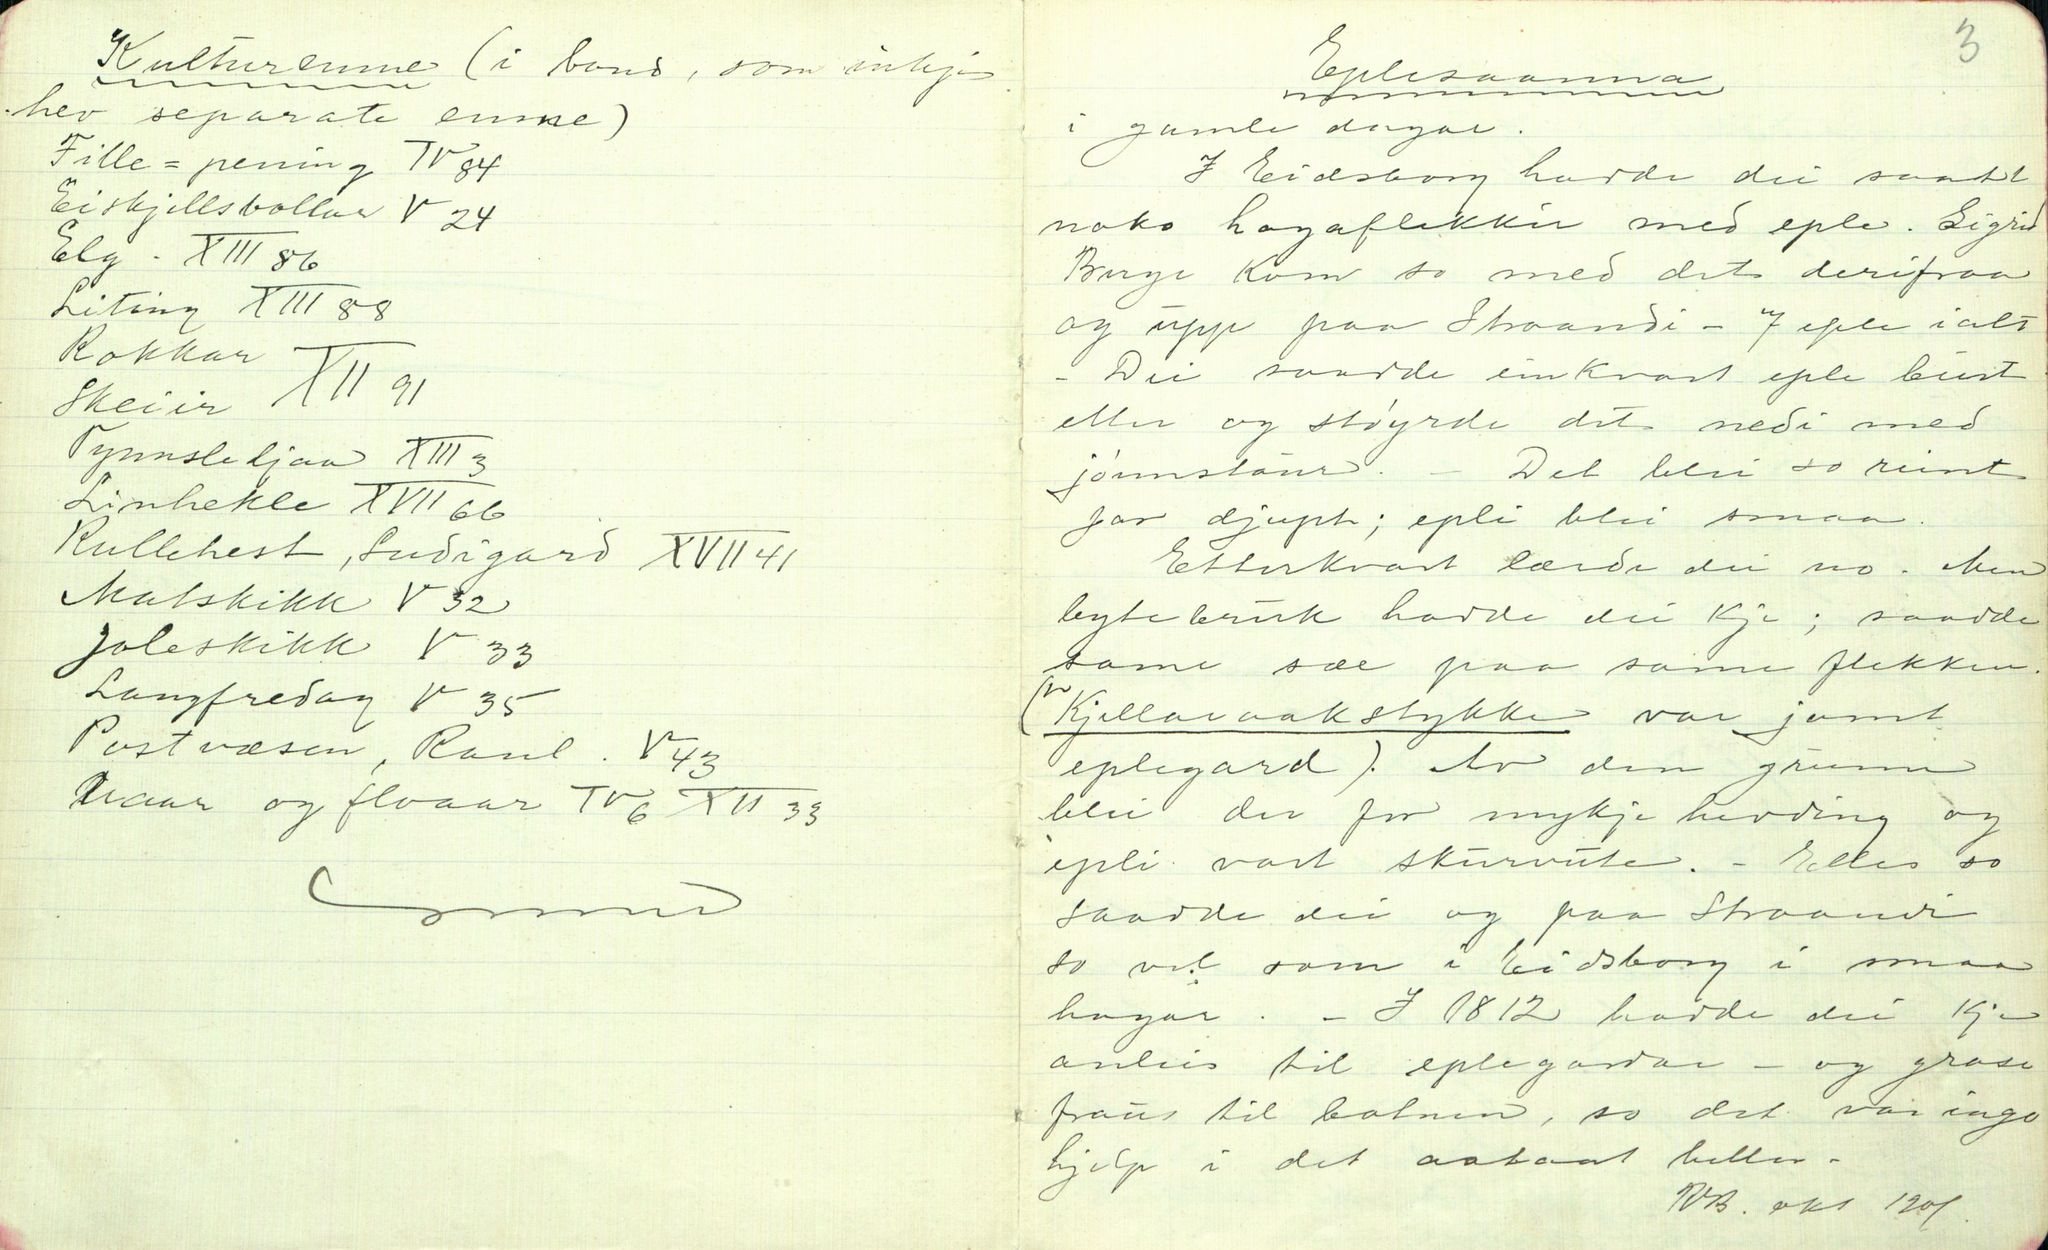 Kulturemne (i band, som inkje
hev separate emne)
Fille=pening IV 84
Eiskjillsbollar V 24
Elg. XIII 86
Liting XIII 88
Rokkar
Skeiir XII 91
Tynnsleljaa XIII 3
Linhekle XVII 66
Rullehest, Sudigard XVII 41
Matskikk V 32
Joleskikk V 33
Langfredag V 35
Postvæsen, Raul. V 43
Uaar og flodaar IV 6 XII 33
3
Eplesaanna
i gamle dagar.
I Eidsborg hadde dei saatt
noko hagaflekkir med eple. Sigrid
Buge kom so med det derifraa
og upp paa Straandi - 7 eple ialt
- Dei saadde einkvart eple beist
eller og støyrde det nedi med
jønnstaur. - Det blei so reint
for djupt; epli blei smaa.
Etterkvart lærde dei no. Men
bytebruk hadde dei kje; saadde
same sæe paa same flekken.
("Kjellaraakstykke var jamt
eplegard). Av den grunn
blei der for mykje herding og
epli vart skurvute. - Elles so
saadde dei og paa Straandi
so vel som i Eidsborg i smaa
hagar. - I 1812 hadde dei kje
anleis til eplegardar - og grase
fraus til botnen, so det var inga
hjelp i det aataat heller -
RB. okt 1901.